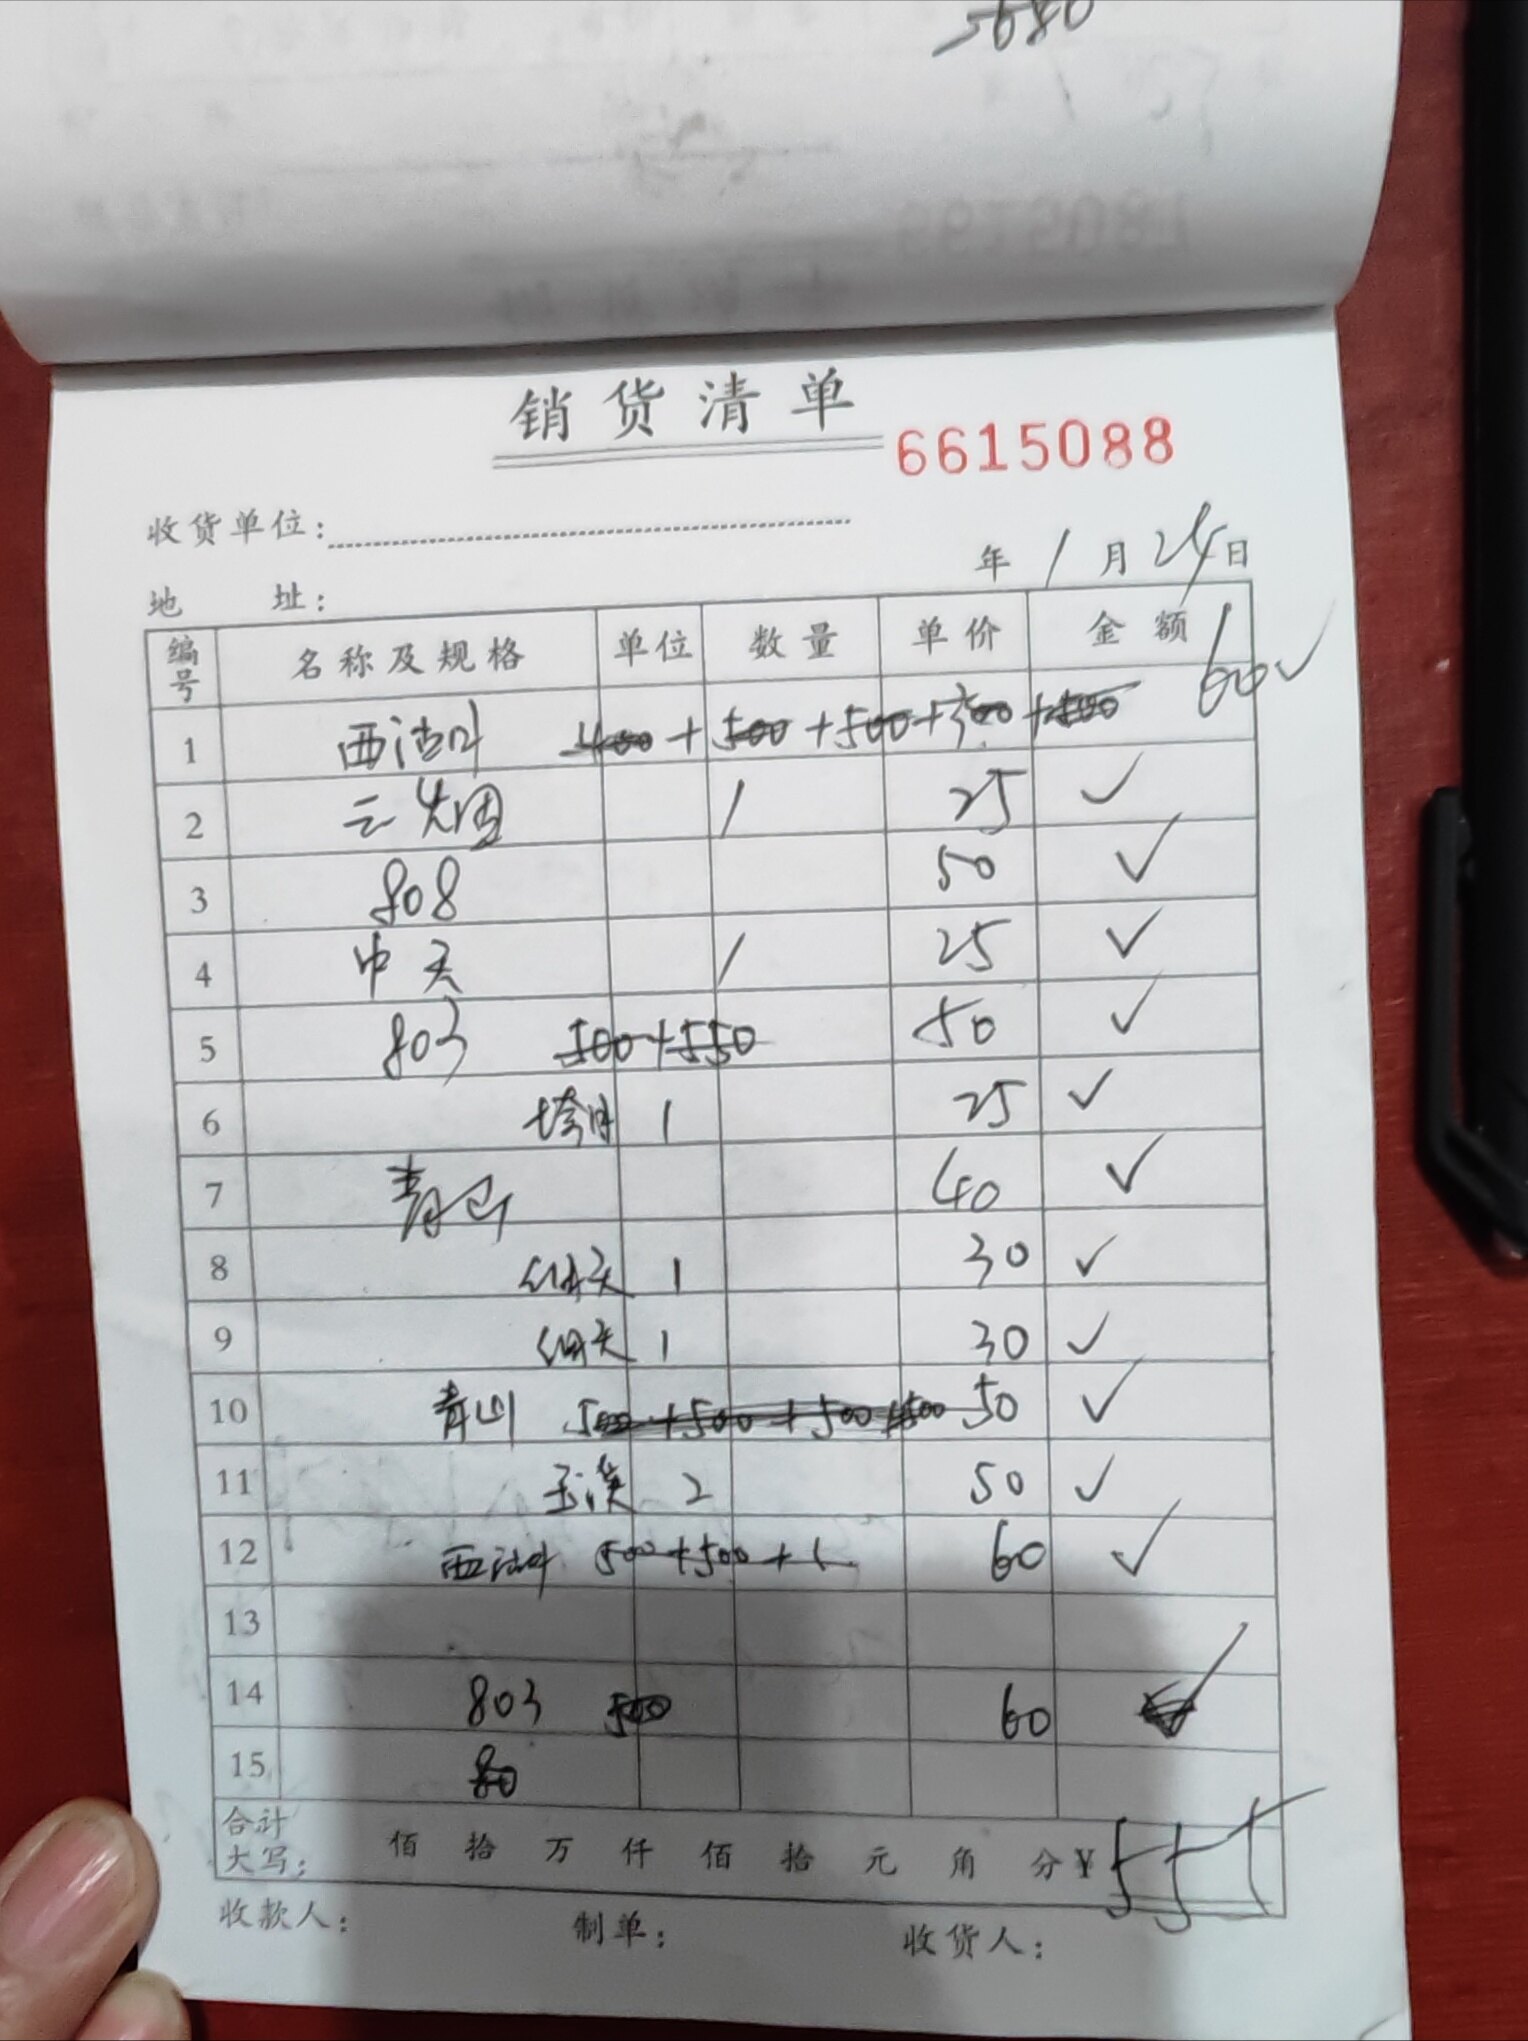 5680
销货清单 6615088
收货单位:
年 1 月 24 日
地 址:
编号 名称及规格 单位 数量 单价 金额
1 400 + 500 + 500 + 500 + 500 60 ✓
2 云烟 1 25 ✓
3 808 50 ✓
4 中天 1 25 ✓
5 803 500+550 50 ✓
6 1 25 ✓
7 青山 40 ✓
8 细天 1 30 ✓
9 细天 1 30 ✓
10 青山 500 + 500 + 500 + 500 50 ✓
11 玉溪 2 50 ✓
12 500 + 500 + 60 ✓
13
14 803 500 60 ✓
15 80
合计大写: 佰 拾 万 仟 佰 拾 元 角 分 ¥ 555
收款人: 制单: 收货人: